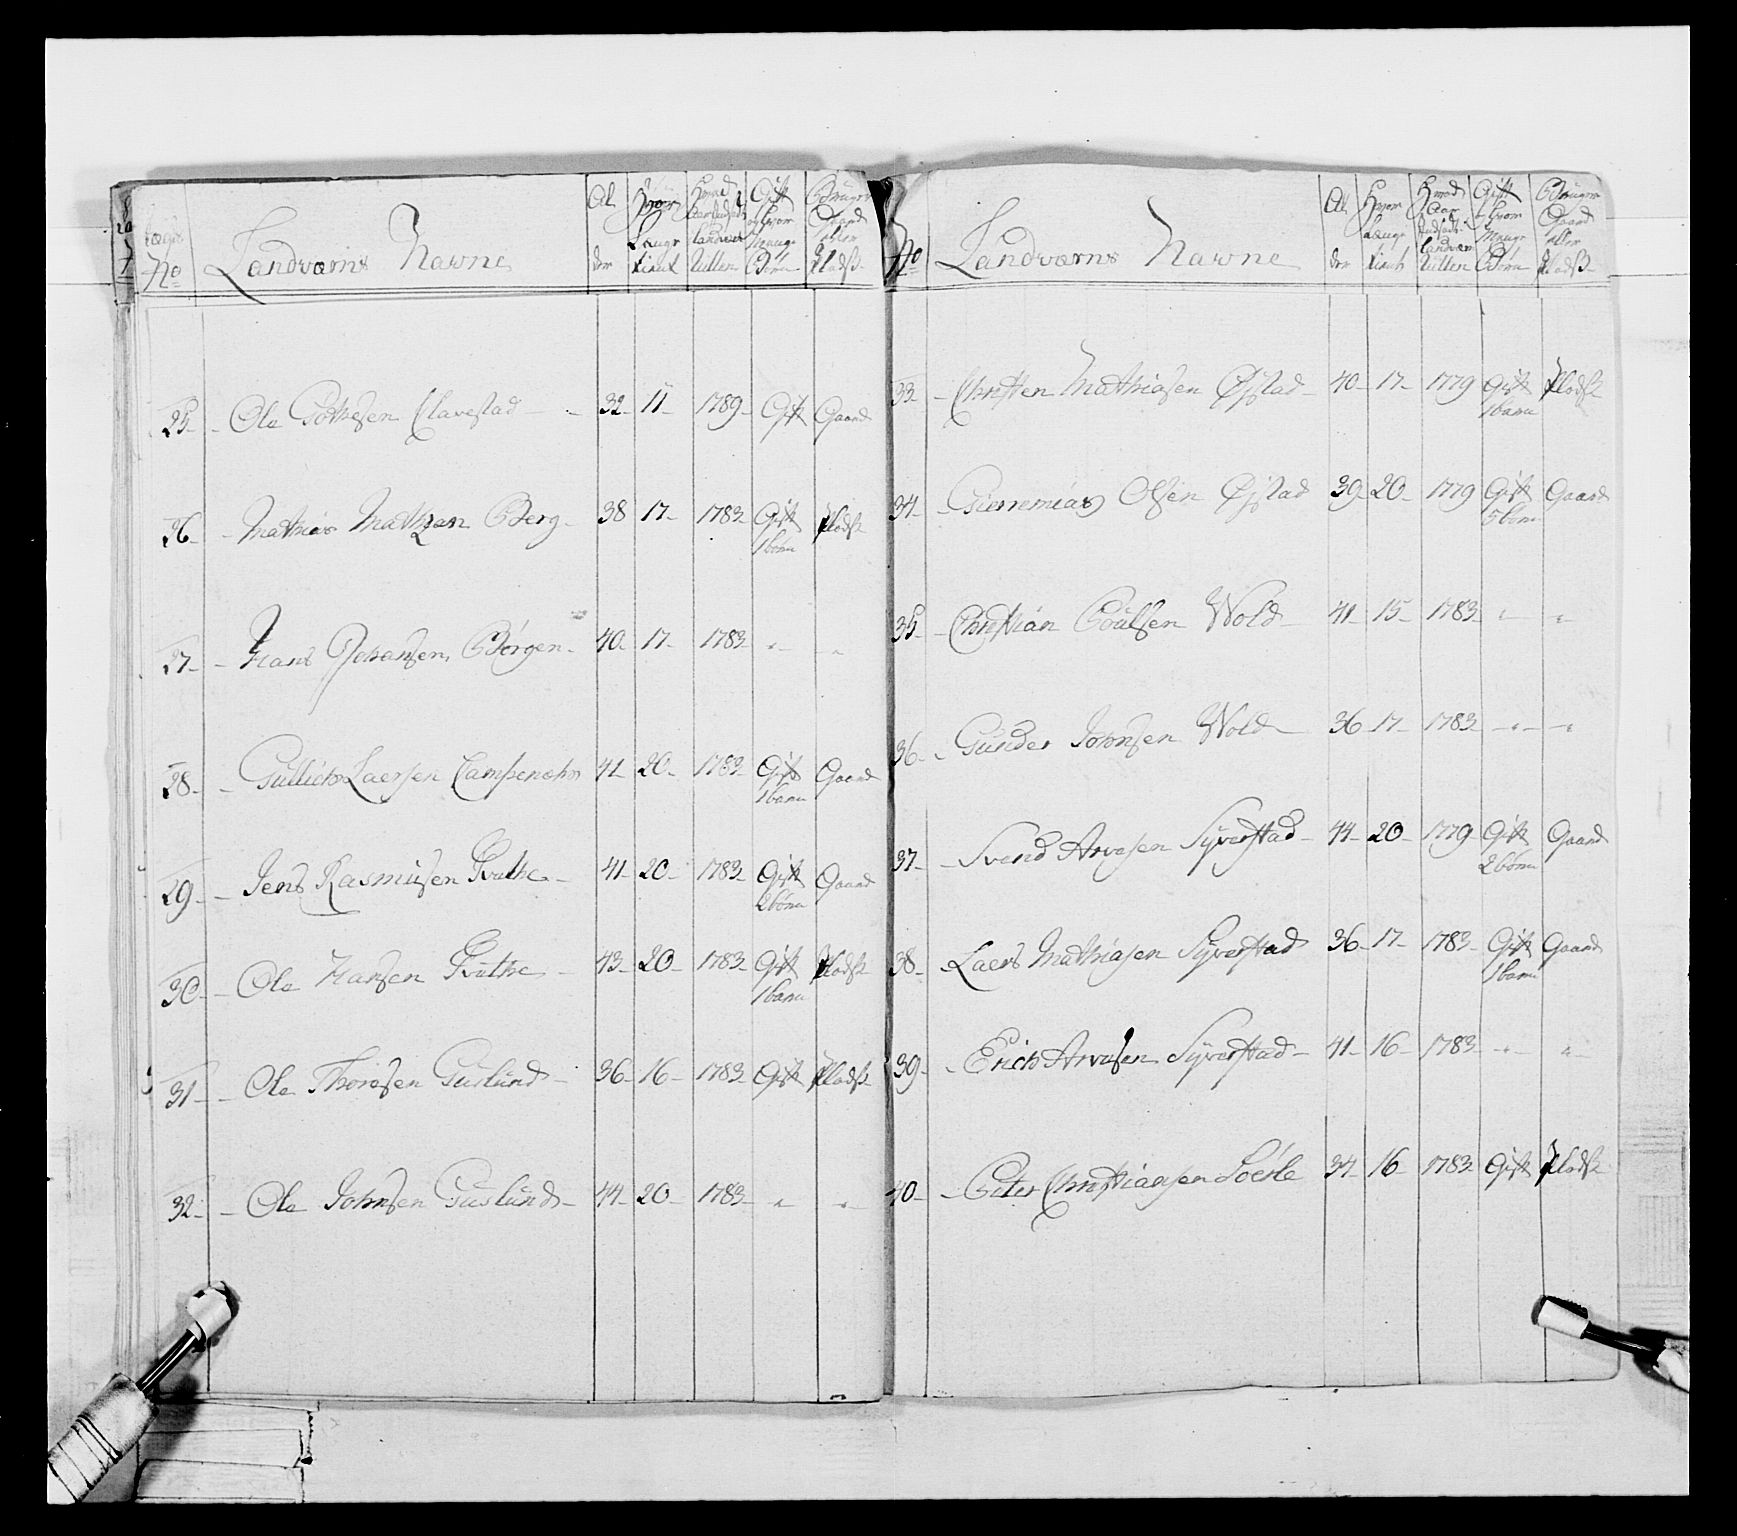 No Landværns Navne Al der Hvor Længe tient Hvad Aar indsadt Landværn Rullen Gift Hvor Mange Børn Bruger Gaard eller Plads
25 - Ole Clavestad - 32 - 11 - 1789 - Gift Gaard
26 - Mathias Mathsen Berg - 38 17 - 1783 Gift Plads
1 barn
27 - Hans Johansen Børgen - 40 - 17 - 1783 - " - "
28 - Gullich Laersen - 41 20 - 1783 - Gift Gaard
1 barn
29 - Jens Rasmusen - 41 - 20 - 1783 - Gift Gaard
2 børn
30 - Ole Hansen - 43 - 20 - 1783 Gift Plads
1 barn
31 - Ole Thoresen Guslund - 36 - 16 - 1783 Gift Plads
32 - Ole Johnsen Guslund - 44 - 20 - 1783 - " "
No Landværns Navne Al der Hvor Længe tient Hvad Aar indsadt Landværn Rullen Gift Hvor Mange Børn Bruger Gaard eller Plads
33 - Christen Mathiasen Øjstad - 40 - 17 - 1779 Gift Plads
1 barn
34 - Gieremias Olsen Øjstad 39 - 20 - 1779 Gift Gaard
5 børn
35 - Christian Poulsen Wold - 41 - 15 - 1783 - " "
36 - Gunder Johnsen Wold - 36 17 - 1783 - " - "
37 - Svend Arvesen Syverstad - 44 - 20 - 1779 Gift Gaard
2 børn
38 - Laers Mathiasen Syverstad 36 - 17 - 1783 - Gift Gaard
1 barn
39 - Erich Arvesen Syverstad - 41 - 16 - 1783 - " - "
40 - Peter Christiansen 34 - 16 - 1783 - Gift Plads